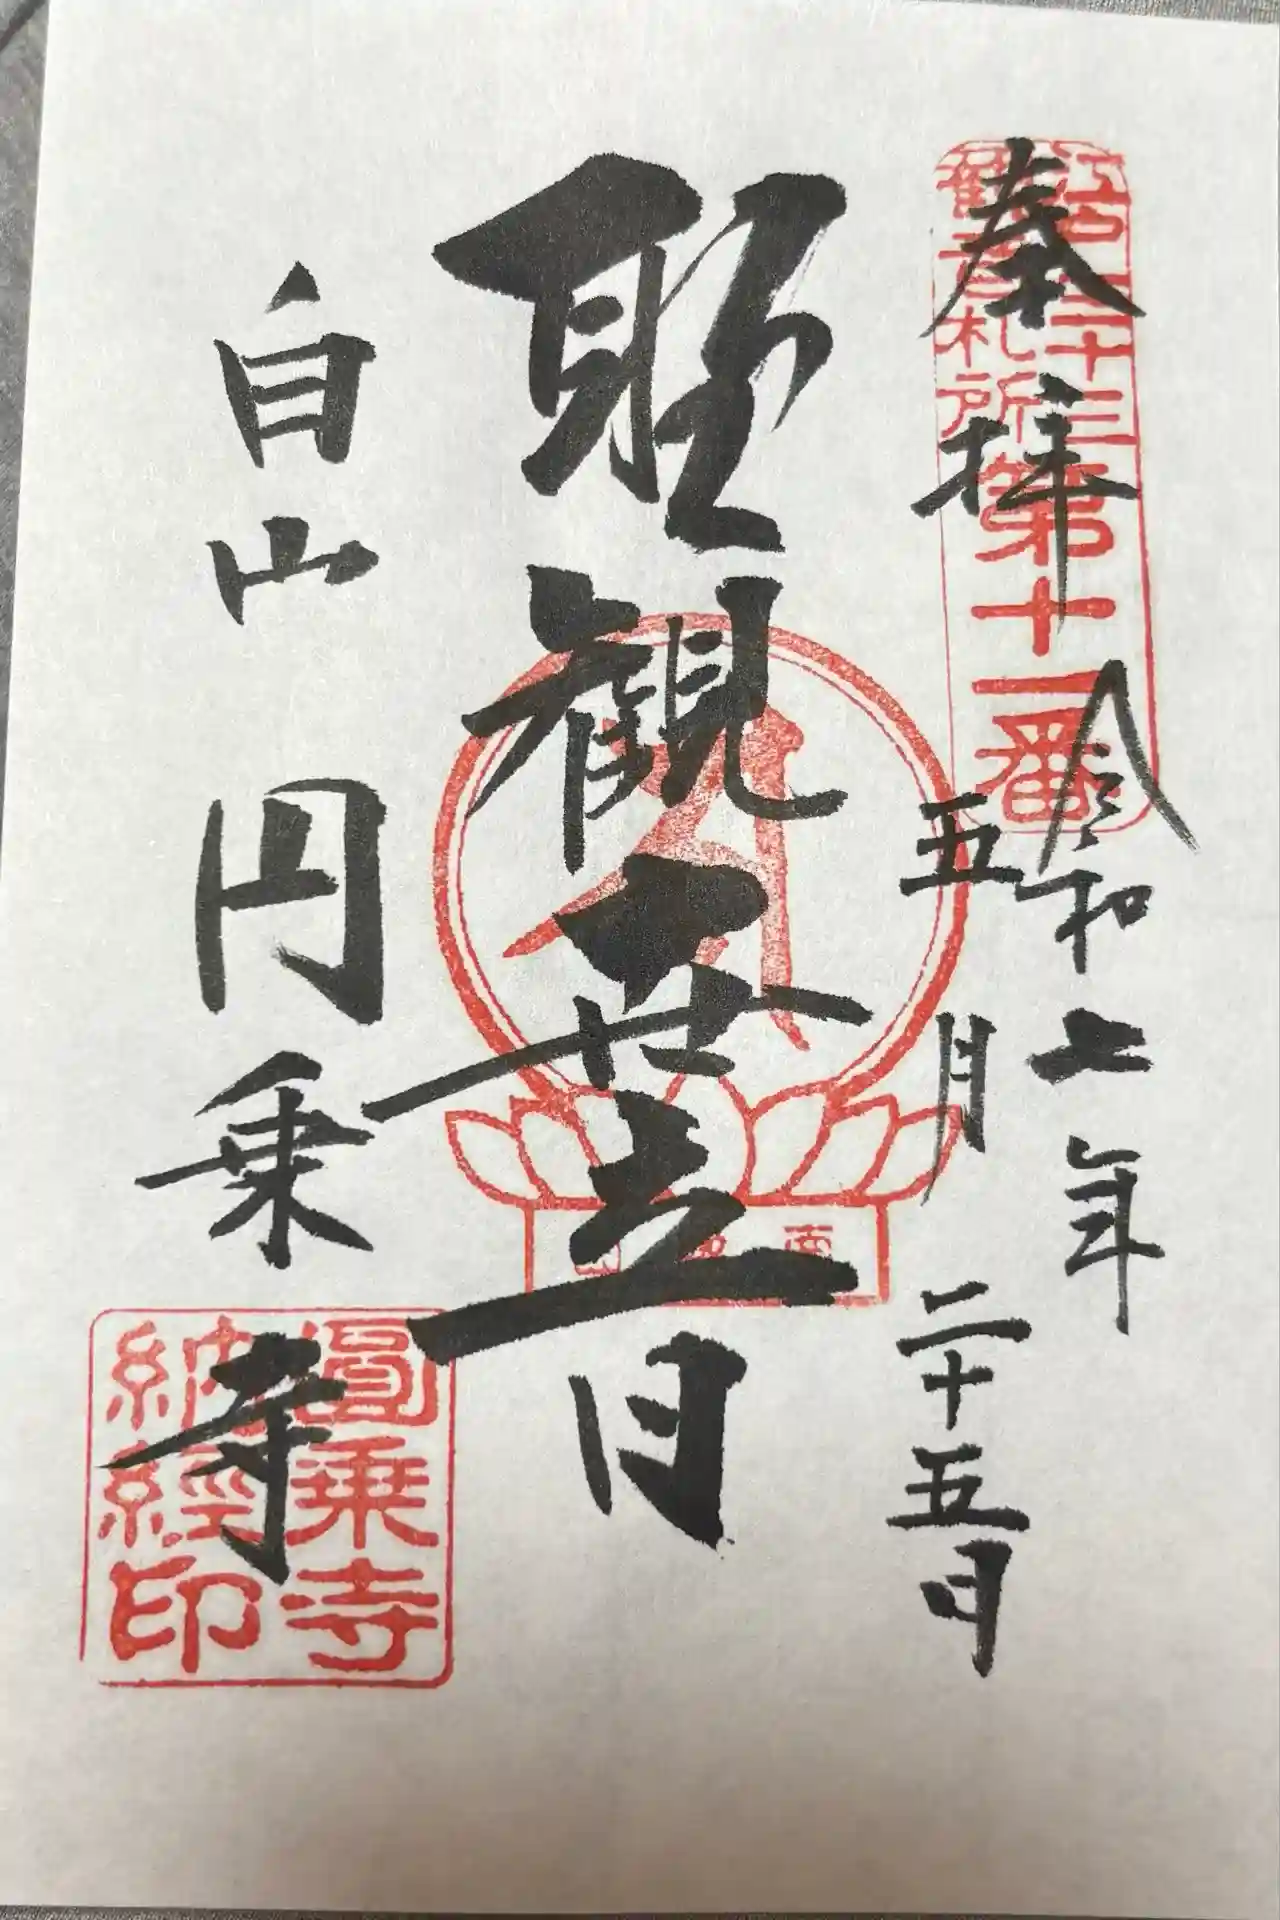 奉拝
江戸三十三
観音札所
第十一番
令和七年
五月二十五日
聖観世音
白山
円乗寺
圓乗寺
納經印